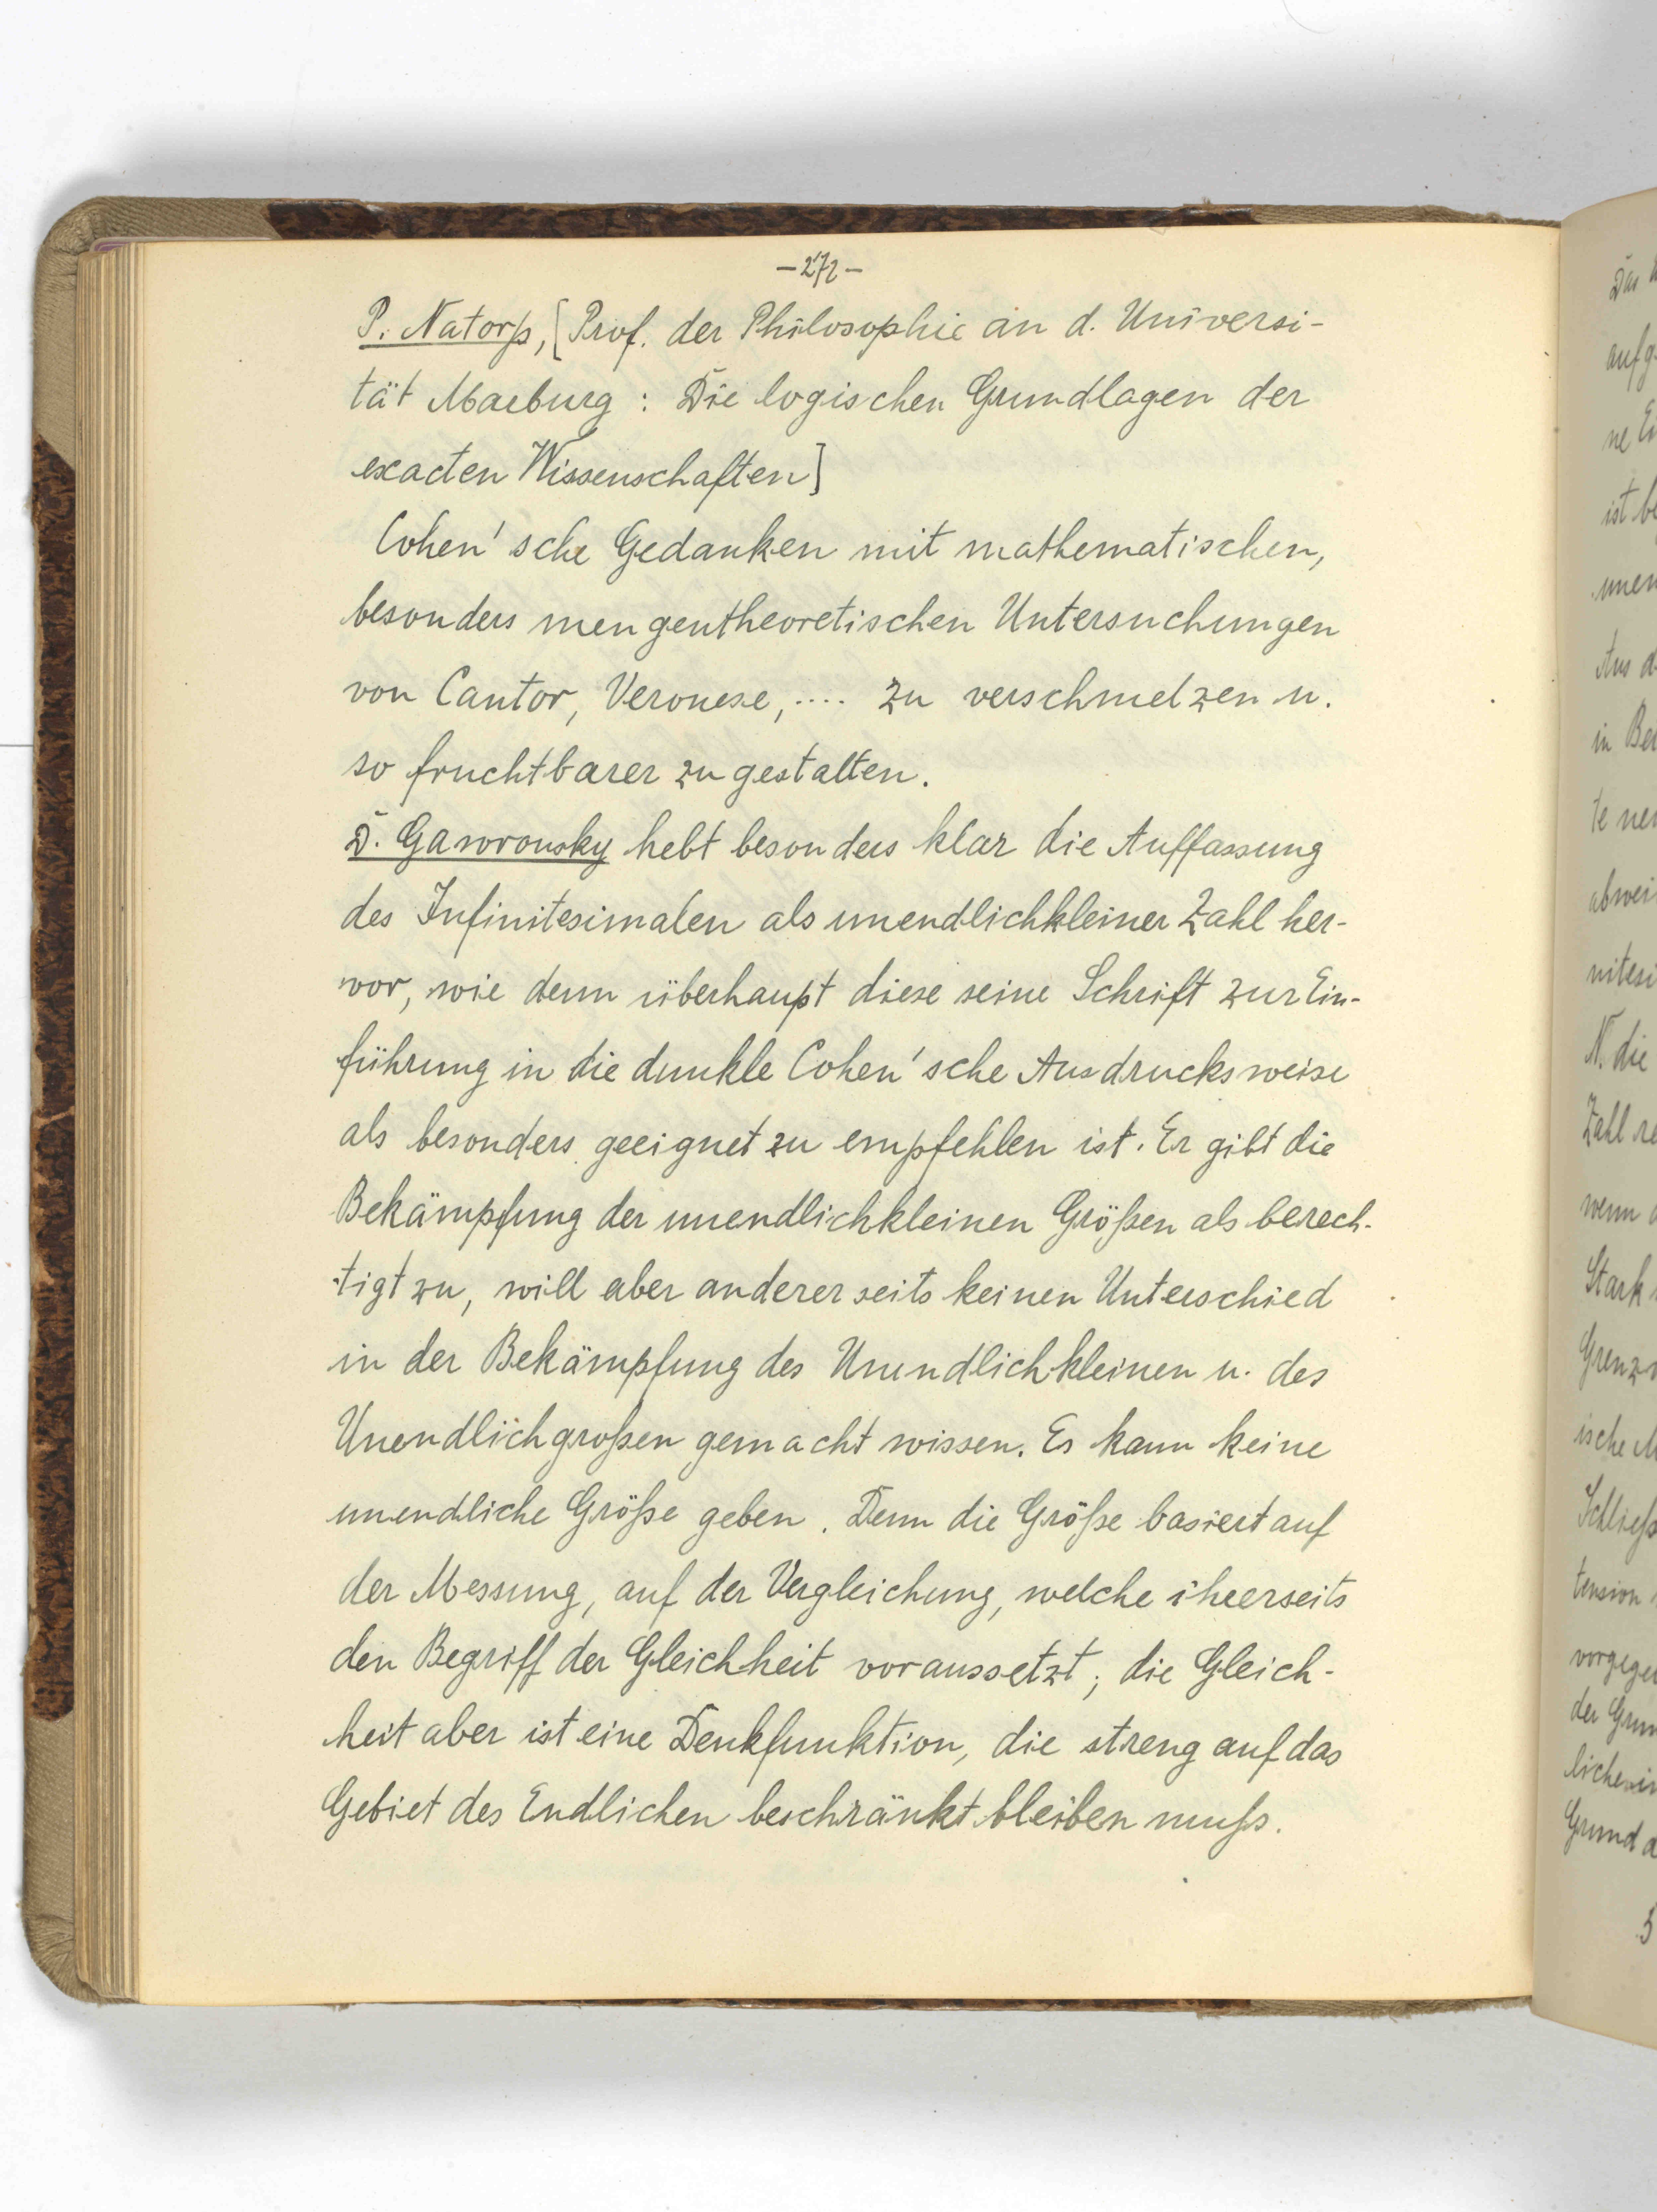 - 272 -
P. Natorp, [Prof. der Philosophie an d. Universi-
tät Marburg : Die logischen Grundlagen der
exacten Wissenschaften]
Cohen'sche Gedanken mit mathematischen,
besonders mengentheoretischen Untersuchungen
von Cantor, Veronese, .... zu verschmelzen u.
so fruchtbarer zu gestalten.
D. Gawronsky hebt besonders klar die Auffassung
des Infinitesimalen als unendlichkleiner Zahl her-
vor, wie denn überhaupt diese seine Schrift zur Ein-
führung in die dunkle Cohen'sche Ausdrucksweise
als besonders geeignet zu empfehlen ist. Er gibt die
Bekämpfung der unendlichkleinen Größen als berech-
tigt zu, will aber andererseits keinen Unterschied
in der Bekämpfung des Unendlichkleinen u. des
Unendlichgroßen gemacht wissen. Es kann keine
unendliche Größe geben. Denn die Größe basiert auf
der Messung, auf der Vergleichung, welche ihrerseits
den Begriff der Gleichheit voraussetzt; die Gleich-
heit aber ist eine Denkfunktion, die streng auf das
Gebiet des Endlichen beschränkt bleiben muß.
Das
aufg
ne
ist
unen
Aus d
in Be
te
abwei
nitesi
N. die
Zahl re
wenn
Stark
Grenz
ische
Schließ
tension
vorgege
der Grun
liche
Grund